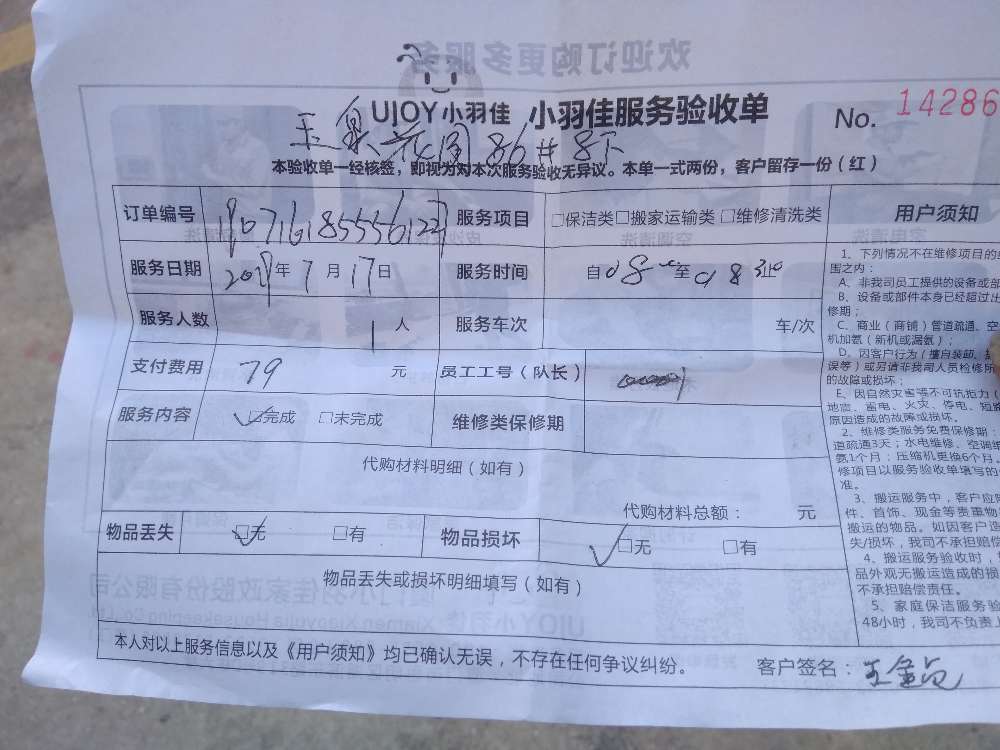 欢迎订购更多服务
UJOY小羽佳 小羽佳服务验收单 No. 14286
玉泉花园86#8下
本验收单一经核签，即视为对本次服务验收无异议。本单一式两份，客户留存一份（红）
订单编号 服务项目 □保洁类□搬家运输类 □维修清洗类 用户须知
服务日期 2019年7月17日 服务时间 自08 至 止
服务人数 1人 服务车次 车/次
支付费用 79 元 员工工号（队长）
服务内容 ☑完成 □未完成 维修类保修期
代购材料明细（如有）
代购材料总额： 元
物品丢失 ☑无 □有 物品损坏 ☑无 □有
物品丢失或损坏明细填写（如有）
本人对以上服务信息以及《用户须知》均已确认无误，不存在任何争议纠纷。 客户签名：
1、下列情况不在维修项目的
围之内：
A、非我司员工提供的设备或部
B、设备或部件本身已经超过出
修期；
C、商业（商铺）管道疏通、空
机加氨（新机或漏氨）；
D、因客户行为（擅自装卸、
误等）或另请非我司人员检修所
的故障或损坏；
E、因自然灾害等不可抗拒力（
地震、雷电、火灾、停电、短路
原因造成的故障或损坏。
2、维修类服务免费保修期：
道疏通3天；水电维修、空调维
氨1个月；压缩机更换6个月。
修项目以服务验收单填写的
准。
3、搬运服务中，客户应
件、首饰、现金等贵重物
搬运的物品。如因客户造
失/损坏，我司不承担赔偿
4、搬运服务验收时，
品外观无搬运造成的损
不承担赔偿责任。
5、家庭保洁服务验
48小时，我司不负责